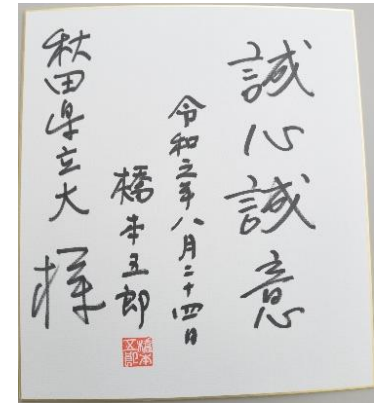 誠心誠意
令和元年八月二十四日
橋本五郎
橋本五郎
秋田県立大様